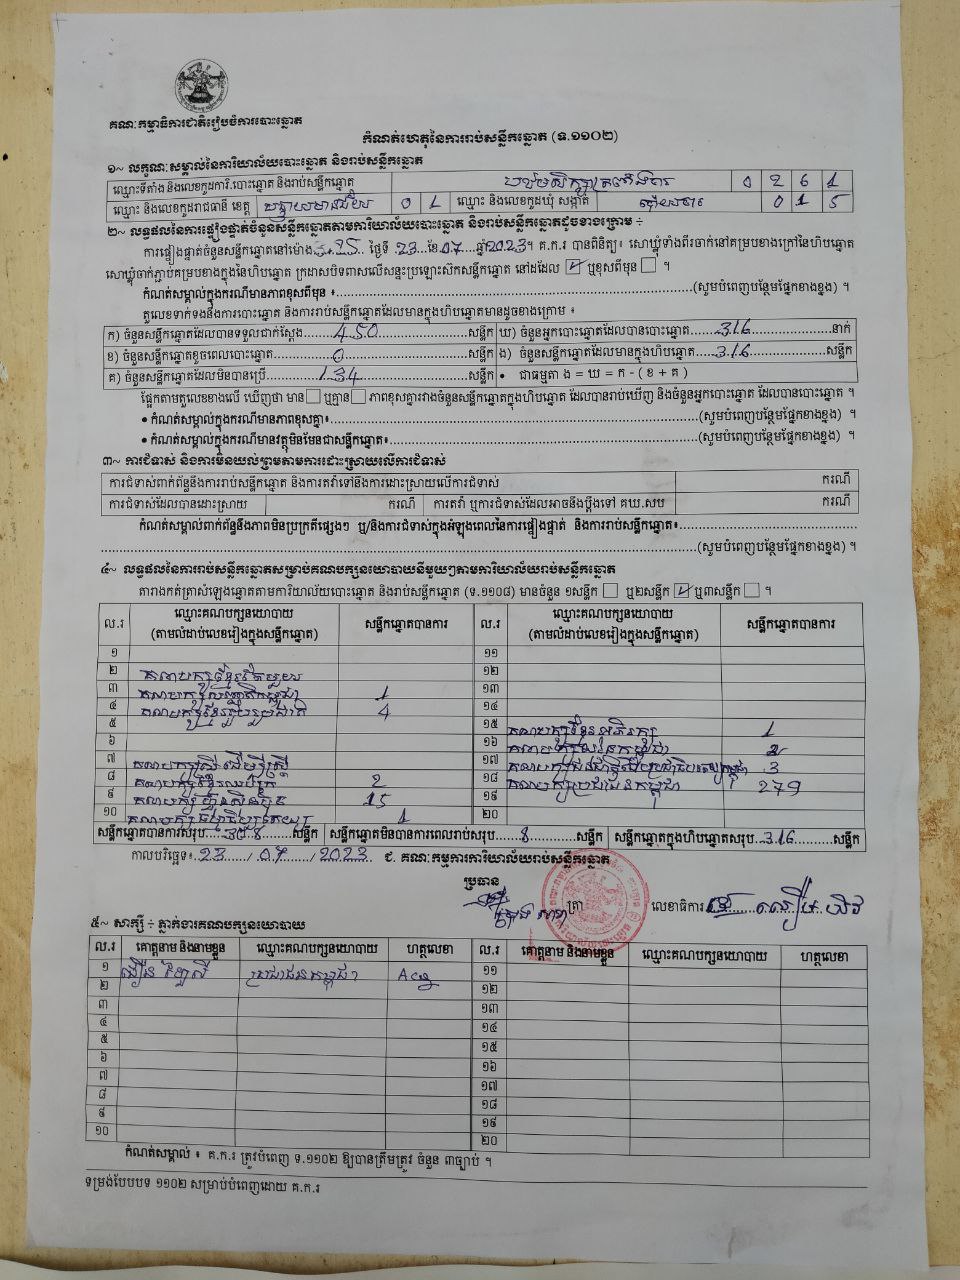 គណៈកម្មាធិការជាតិរៀបចំការបោះឆ្នោត
កំណត់ហេតុនៃការរាប់សន្លឹកឆ្នោត (ទ.១១០២)
១~ លក្ខណៈសម្គាល់នៃការិយាល័យបោះឆ្នោត និងរាប់សន្លឹកឆ្នោត
ឈ្មោះទីតាំង និងលេខកូដការិ.បោះឆ្នោត និងរាប់សន្លឹកឆ្នោត 0 2 6 1
ឈ្មោះ និងលេខកូដរាជធានី ខេត្ត បន្ទាយមានជ័យ 0 1 ឈ្មោះ និងលេខកូដឃុំ សង្កាត់ 0 1 5
២~ លទ្ធផលនៃការផ្ទៀងផ្ទាត់ចំនួនសន្លឹកឆ្នោតតាមការិយាល័យបោះឆ្នោត និងរាប់សន្លឹកឆ្នោតដូចខាងក្រោម ÷
ការផ្ទៀងផ្ទាត់ចំនួនសន្លឹកឆ្នោតនៅម៉ោង 3:25 ថ្ងៃទី 23 ខែ 07 ឆ្នាំ 2023។ គ.ក.រ បានពិនិត្យ៖ សោឃ្លុំទាំងពីរចាក់នៅគម្របខាងក្រៅនៃហិបឆ្នោត
សោឃ្លុំចាក់ភ្ជាប់គម្របខាងក្នុងនៃហិបឆ្នោត ក្រដាសបិទពាសលើសន្ទះប្រឡោះស៊កសន្លឹកឆ្នោត នៅដដែល ☑ ឬខុសពីមុន ☐ ។
កំណត់សម្គាល់ក្នុងករណីមានភាពខុសពីមុន ៖ (សូមបំពេញបន្ថែមផ្នែកខាងខ្នង) ។
តួលេខទាក់ទងនឹងការបោះឆ្នោត និងការរាប់សន្លឹកឆ្នោតដែលមានក្នុងហិបឆ្នោតមានដូចខាងក្រោម ៖
ក) ចំនួនសន្លឹកឆ្នោតដែលបានទទួលជាក់ស្តែង 450 សន្លឹក ឃ) ចំនួនអ្នកបោះឆ្នោតដែលបានបោះឆ្នោត 316 នាក់
ខ) ចំនួនសន្លឹកឆ្នោតខូចពេលបោះឆ្នោត 0 សន្លឹក ង) ចំនួនសន្លឹកឆ្នោតដែលមានក្នុងហិបឆ្នោត 316 សន្លឹក
គ) ចំនួនសន្លឹកឆ្នោតដែលមិនបានប្រើ 134 សន្លឹក • ជាធម្មតា ង = ឃ = ក - ( ខ + គ )
ផ្អែកតាមតួលេខខាងលើ ឃើញថា មាន ☐ ឬគ្មាន ☐ ភាពខុសគ្នារវាងចំនួនសន្លឹកឆ្នោតក្នុងហិបឆ្នោត ដែលបានរាប់ឃើញ និងចំនួនអ្នកបោះឆ្នោត ដែលបានបោះឆ្នោត ។
• កំណត់សម្គាល់ក្នុងករណីមានភាពខុសគ្នា៖ (សូមបំពេញបន្ថែមផ្នែកខាងខ្នង) ។
• កំណត់សម្គាល់ក្នុងករណីមានវត្ថុមិនមែនជាសន្លឹកឆ្នោត៖ (សូមបំពេញបន្ថែមផ្នែកខាងខ្នង) ។
៣~ ការជំទាស់ និងការមិនយល់ព្រមតាមការដោះស្រាយលើការជំទាស់
ការជំទាស់ពាក់ព័ន្ធនឹងការរាប់សន្លឹកឆ្នោត និងការតវ៉ាទៅនឹងការដោះស្រាយលើការជំទាស់ ករណី
ការជំទាស់ដែលបានដោះស្រាយ ករណី ការតវ៉ា ឬការជំទាស់ដែលអាចនឹងប្តឹងទៅ គឃ.សប ករណី
កំណត់សម្គាល់ពាក់ព័ន្ធនឹងភាពមិនប្រក្រតីផ្សេងៗ ឬ/និងការជំទាស់ក្នុងអំឡុងពេលនៃការផ្ទៀងផ្ទាត់ និងការរាប់សន្លឹកឆ្នោត៖
(សូមបំពេញបន្ថែមផ្នែកខាងខ្នង) ។
៤~ លទ្ធផលនៃការរាប់សន្លឹកឆ្នោតសម្រាប់គណបក្សនយោបាយនីមួយៗតាមការិយាល័យរាប់សន្លឹកឆ្នោត
តារាងកត់ត្រាសំឡេងឆ្នោតតាមការិយាល័យបោះឆ្នោត និងរាប់សន្លឹកឆ្នោត (ទ.១១០៨) មានចំនួន ១សន្លឹក ☐ ឬ២សន្លឹក ☑ ឬ៣សន្លឹក ☐ ។
ល.រ ឈ្មោះគណបក្សនយោបាយ (តាមលំដាប់លេខរៀងក្នុងសន្លឹកឆ្នោត) សន្លឹកឆ្នោតបានការ ល.រ ឈ្មោះគណបក្សនយោបាយ (តាមលំដាប់លេខរៀងក្នុងសន្លឹកឆ្នោត) សន្លឹកឆ្នោតបានការ
១ ១១
២ គណបក្សខ្មែរតែមួយ ១២
៣ 1 ១៣
៤ គណបក្សខ្មែររួបរួមជាតិ 4 ១៤
៥ ១៥ គណបក្សខ្មែរអភិរក្ស 1
៦ ១៦ 2
៧ គណបក្សស្រ្តីដើម្បីស្រ្តី ១៧ 3
៨ 2 ១៨ គណបក្សប្រជាជនកម្ពុជា 279
៩ គណបក្សហ៊្វុនស៊ិនប៉ិច 15 ១៩
១០ គណបក្សធម្មាធិបតេយ្យ 1 ២០
សន្លឹកឆ្នោតបានការសរុប 308 សន្លឹក សន្លឹកឆ្នោតមិនបានការពេលរាប់សរុប 8 សន្លឹក សន្លឹកឆ្នោតក្នុងហិបឆ្នោតសរុប 316 សន្លឹក
កាលបរិច្ឆេទ៖ 23 / 07 / 2023 ជ. គណៈកម្មការការិយាល័យរាប់សន្លឹកឆ្នោត
ប្រធាន
ត្រា លេខាធិការ
៥~ សាក្សី ÷ ភ្នាក់ងារគណបក្សនយោបាយ
ល.រ គោត្តនាម និងនាមខ្លួន ឈ្មោះគណបក្សនយោបាយ ហត្ថលេខា ល.រ គោត្តនាម និងនាមខ្លួន ឈ្មោះគណបក្សនយោបាយ ហត្ថលេខា
១ ប្រជាជនកម្ពុជា ១១
២ ១២
៣ ១៣
៤ ១៤
៥ ១៥
៦ ១៦
៧ ១៧
៨ ១៨
៩ ១៩
១០ ២០
កំណត់សម្គាល់ ៖ គ.ក.រ ត្រូវបំពេញ ទ.១១០២ ឱ្យបានត្រឹមត្រូវ ចំនួន ៣ច្បាប់ ។
ទម្រង់បែបបទ ១១០២ សម្រាប់បំពេញដោយ គ.ក.រ